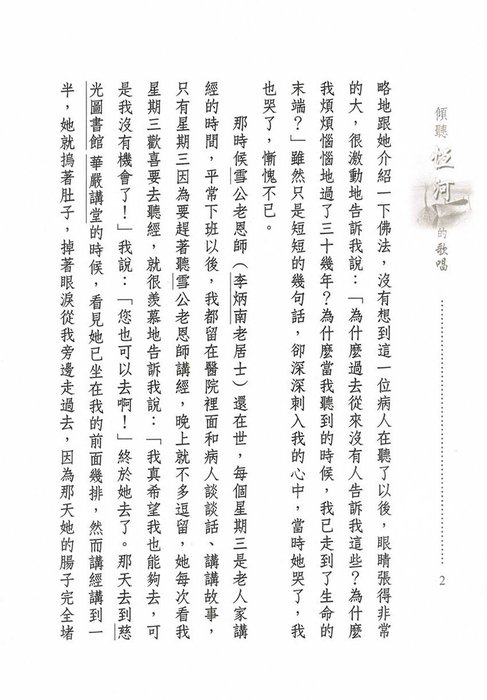 傾聽恆河的歌唱
2
略地跟她介紹一下佛法，沒有想到這一位病人在聽了以後，眼睛張得非常
的大，很激動地告訴我說：「為什麼過去從來沒有人告訴我這些？為什麼
我煩煩惱惱地過了三十幾年？為什麼當我聽到的時候，我已走到了生命的
末端？」雖然只是短短的幾句話，卻深深刺入我的心中，當時她哭了，我
也哭了，慚愧不已。
那時候雪公老恩師（李炳南老居士）還在世，每個星期三是老人家講
經的時間，平常下班以後，我都留在醫院裡面和病人談談話、講講故事，
只有星期三因為要趕著聽雪公老恩師講經，晚上就不多逗留，她每次看我
星期三歡喜要去聽經，就很羨慕地告訴我說：「我真希望我也能夠去，可
是我沒有機會了！」我說：「您也可以去啊！」終於她去了。那天去到慈
光圖書館華嚴講堂的時候，看見她已坐在我的前面幾排，然而講經講到一
半，她就搗著肚子，掉著眼淚從我旁邊走過去，因為那天她的腸子完全堵